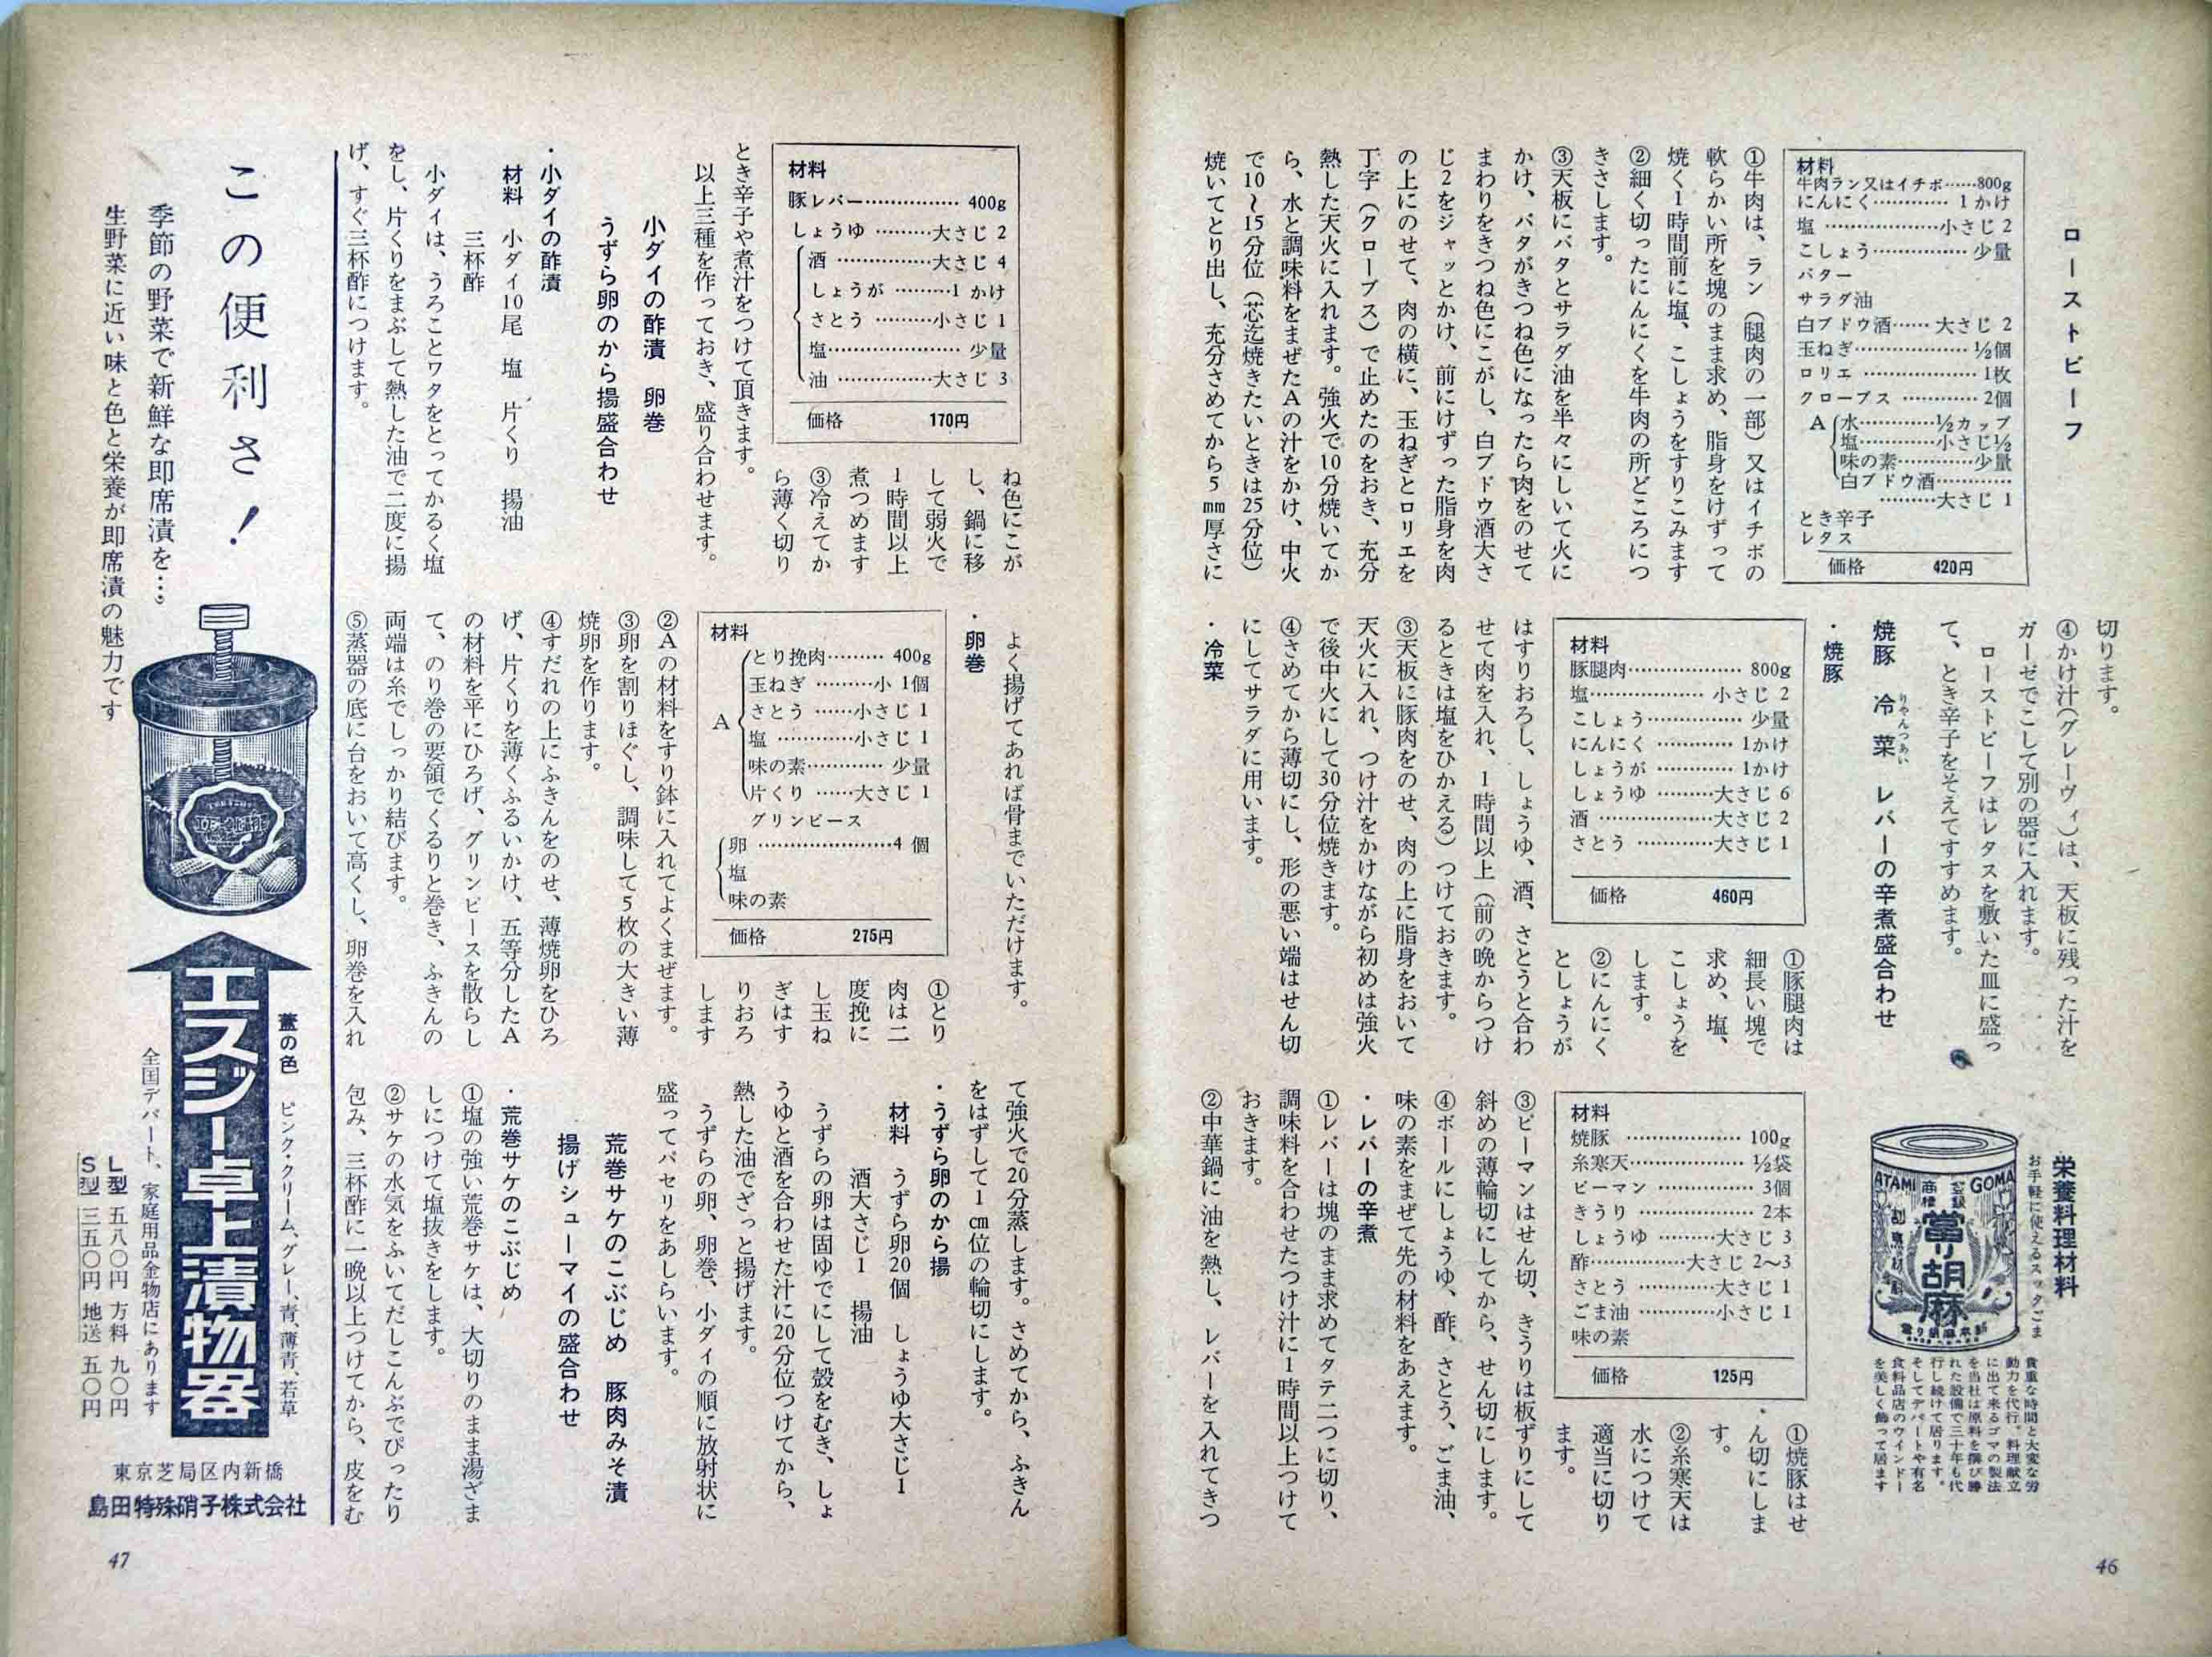 ローストビーフ
材料
牛肉ラン又はイチボ……800g
にんにく…………1かけ
塩………………小さじ2
こしょう……………少量
バター
サラダ油
白ブドウ酒……大さじ2
玉ねぎ………………½個
ロリエ………………1枚
クローブス…………2個
A
水…………½カップ
塩…………小さじ½
味の素…………少量
白ブドウ酒…………
………大さじ1
とき辛子
レタス
価格 420円
①牛肉は、ラン（腿肉の一部）又はイチボの
軟らかい所を塊のまま求め、脂身をけずって
焼く1時間前に塩、こしょうをすりこみます
②細く切ったにんにくを牛肉の所どころにつ
きさします。
③天板にバタとサラダ油を半々にしいて火に
かけ、バタがきつね色になったら肉をのせて
まわりをきつね色にこがし、白ブドウ酒大さ
じ2をジャッとかけ、前にけずった脂身を肉
の上にのせて、肉の横に、玉ねぎとロリエを
丁字（クローブス）で止めたのをおき、充分
熱した天火に入れます。強火で10分焼いてか
ら、水と調味料をまぜたAの汁をかけ、中火
で10〜15分位（芯迄焼きたいときは25分位）
焼いてとり出し、充分さめてから5mm厚さに
切ります。
④かけ汁（グレーヴィ）は、天板に残った汁を
ガーゼでこして別の器に入れます。
ローストビーフはレタスを敷いた皿に盛っ
て、とき辛子をそえてすすめます。
焼豚 冷菜 レバーの辛煮盛合わせ
りゃんつあい
・焼豚
材料
豚腿肉………………800g
塩………………小さじ2
こしょう……………少量
にんにく…………1かけ
しょうが…………1かけ
しょうゆ………大さじ6
酒………………大さじ2
さとう…………大さじ1
価格 460円
①豚腿肉は
細長い塊で
求め、塩、
こしょうを
します。
②にんにく
としょうが
はすりおろし、しょうゆ、酒、さとうと合わ
せて肉を入れ、1時間以上（前の晩からつけ
るときは塩をひかえる）つけておきます。
③天板に豚肉をのせ、肉の上に脂身をおいて
天火に入れ、つけ汁をかけながら初めは強火
で後中火にして30分位焼きます。
④さめてから薄切にし、形の悪い端はせん切
にしてサラダに用います。
・冷菜
栄養料理材料
お手軽に使えるスリックごま
ATAMI GOMA
登録
商標
當り胡麻
貴重な時間と大変な労
動力を代行、料理献立
に出て来るゴマの製法
を当社は原料を撰び勝
れた設備で三十年も代
行し続けて居ります。
そしてデパートや有名
食料品店のウインドー
を美しく飾って居ます
材料
焼豚………………100g
糸寒天………………½袋
ピーマン……………3個
きうり………………2本
しょうゆ………大さじ3
酢……………大さじ2〜3
さとう…………大さじ1
ごま油…………小さじ1
味の素
価格 125円
①焼豚はせ
ん切にしま
す。
②糸寒天は
水につけて
適当に切り
ます。
③ピーマンはせん切、きうりは板ずりにして
斜めの薄輪切にしてから、せん切にします。
④ボールにしょうゆ、酢、さとう、ごま油、
味の素をまぜて先の材料をあえます。
・レバーの辛煮
①レバーは塊のまま求めてタテ二つに切り、
調味料を合わせたつけ汁に1時間以上つけて
おきます。
②中華鍋に油を熱し、レバーを入れてきつ
46
材料
豚レバー……………400g
しょうゆ………大さじ2
酒……………大さじ4
しょうが………1かけ
さとう………小さじ1
塩…………………少量
油……………大さじ3
価格 170円
ね色にこが
し、鍋に移
して弱火で
1時間以上
煮つめます
③冷えてか
ら薄く切り
とき辛子や煮汁をつけて頂きます。
以上三種を作っておき、盛り合わせます。
小ダイの酢漬 卵巻
うずら卵のから揚盛合わせ
・小ダイの酢漬
材料 小ダイ10尾 塩 片くり 揚油
三杯酢
小ダイは、うろことワタをとってかるく塩
をし、片くりをまぶして熱した油で二度に揚
げ、すぐ三杯酢につけます。
よく揚げてあれば骨までいただけます。
・卵巻
材料
A
とり挽肉………400g
玉ねぎ………小1個
さとう……小さじ1
塩…………小さじ1
味の素…………少量
片くり……大さじ1
グリンピース
卵…………………4個
塩
味の素
価格 275円
①とり
肉は二
度挽に
し玉ね
ぎはす
りおろ
します
②Aの材料をすり鉢に入れてよくまぜます。
③卵を割りほぐし、調味して5枚の大きい薄
焼卵を作ります。
④すだれの上にふきんをのせ、薄焼卵をひろ
げ、片くりを薄くふるいかけ、五等分したA
の材料を平にひろげ、グリンピースを散らし
て、のり巻の要領でくるりと巻き、ふきんの
両端は糸でしっかり結びます。
⑤蒸器の底に台をおいて高くし、卵巻を入れ
て強火で20分蒸します。さめてから、ふきん
をはずして1cm位の輪切にします。
・うずら卵のから揚
材料 うずら卵20個 しょうゆ大さじ1
酒大さじ1 揚油
うずらの卵は固ゆでにして殻をむき、しょ
うゆと酒を合わせた汁に20分位つけてから、
熱した油でざっと揚げます。
うずらの卵、卵巻、小ダイの順に放射状に
盛ってパセリをあしらいます。
荒巻サケのこぶじめ 豚肉みそ漬
揚げシューマイの盛合わせ
・荒巻サケのこぶじめ
①塩の強い荒巻サケは、大切りのまま湯ざま
しにつけて塩抜きをします。
②サケの水気をふいてだしこんぶでぴったり
包み、三杯酢に一晩以上つけてから、皮をむ
この便利さ！
季節の野菜で新鮮な即席漬を…。
生野菜に近い味と色と栄養が即席漬の魅力です
エスジー卓上漬物器
蓋の色 ピンク・クリーム、グレー、青、薄青、若草
全国デパート、家庭用品金物店にあります
L型 五八〇円 方料 九〇円
S型 三五〇円 地送 五〇円
東京芝局区内新橋
島田特殊硝子株式会社
47